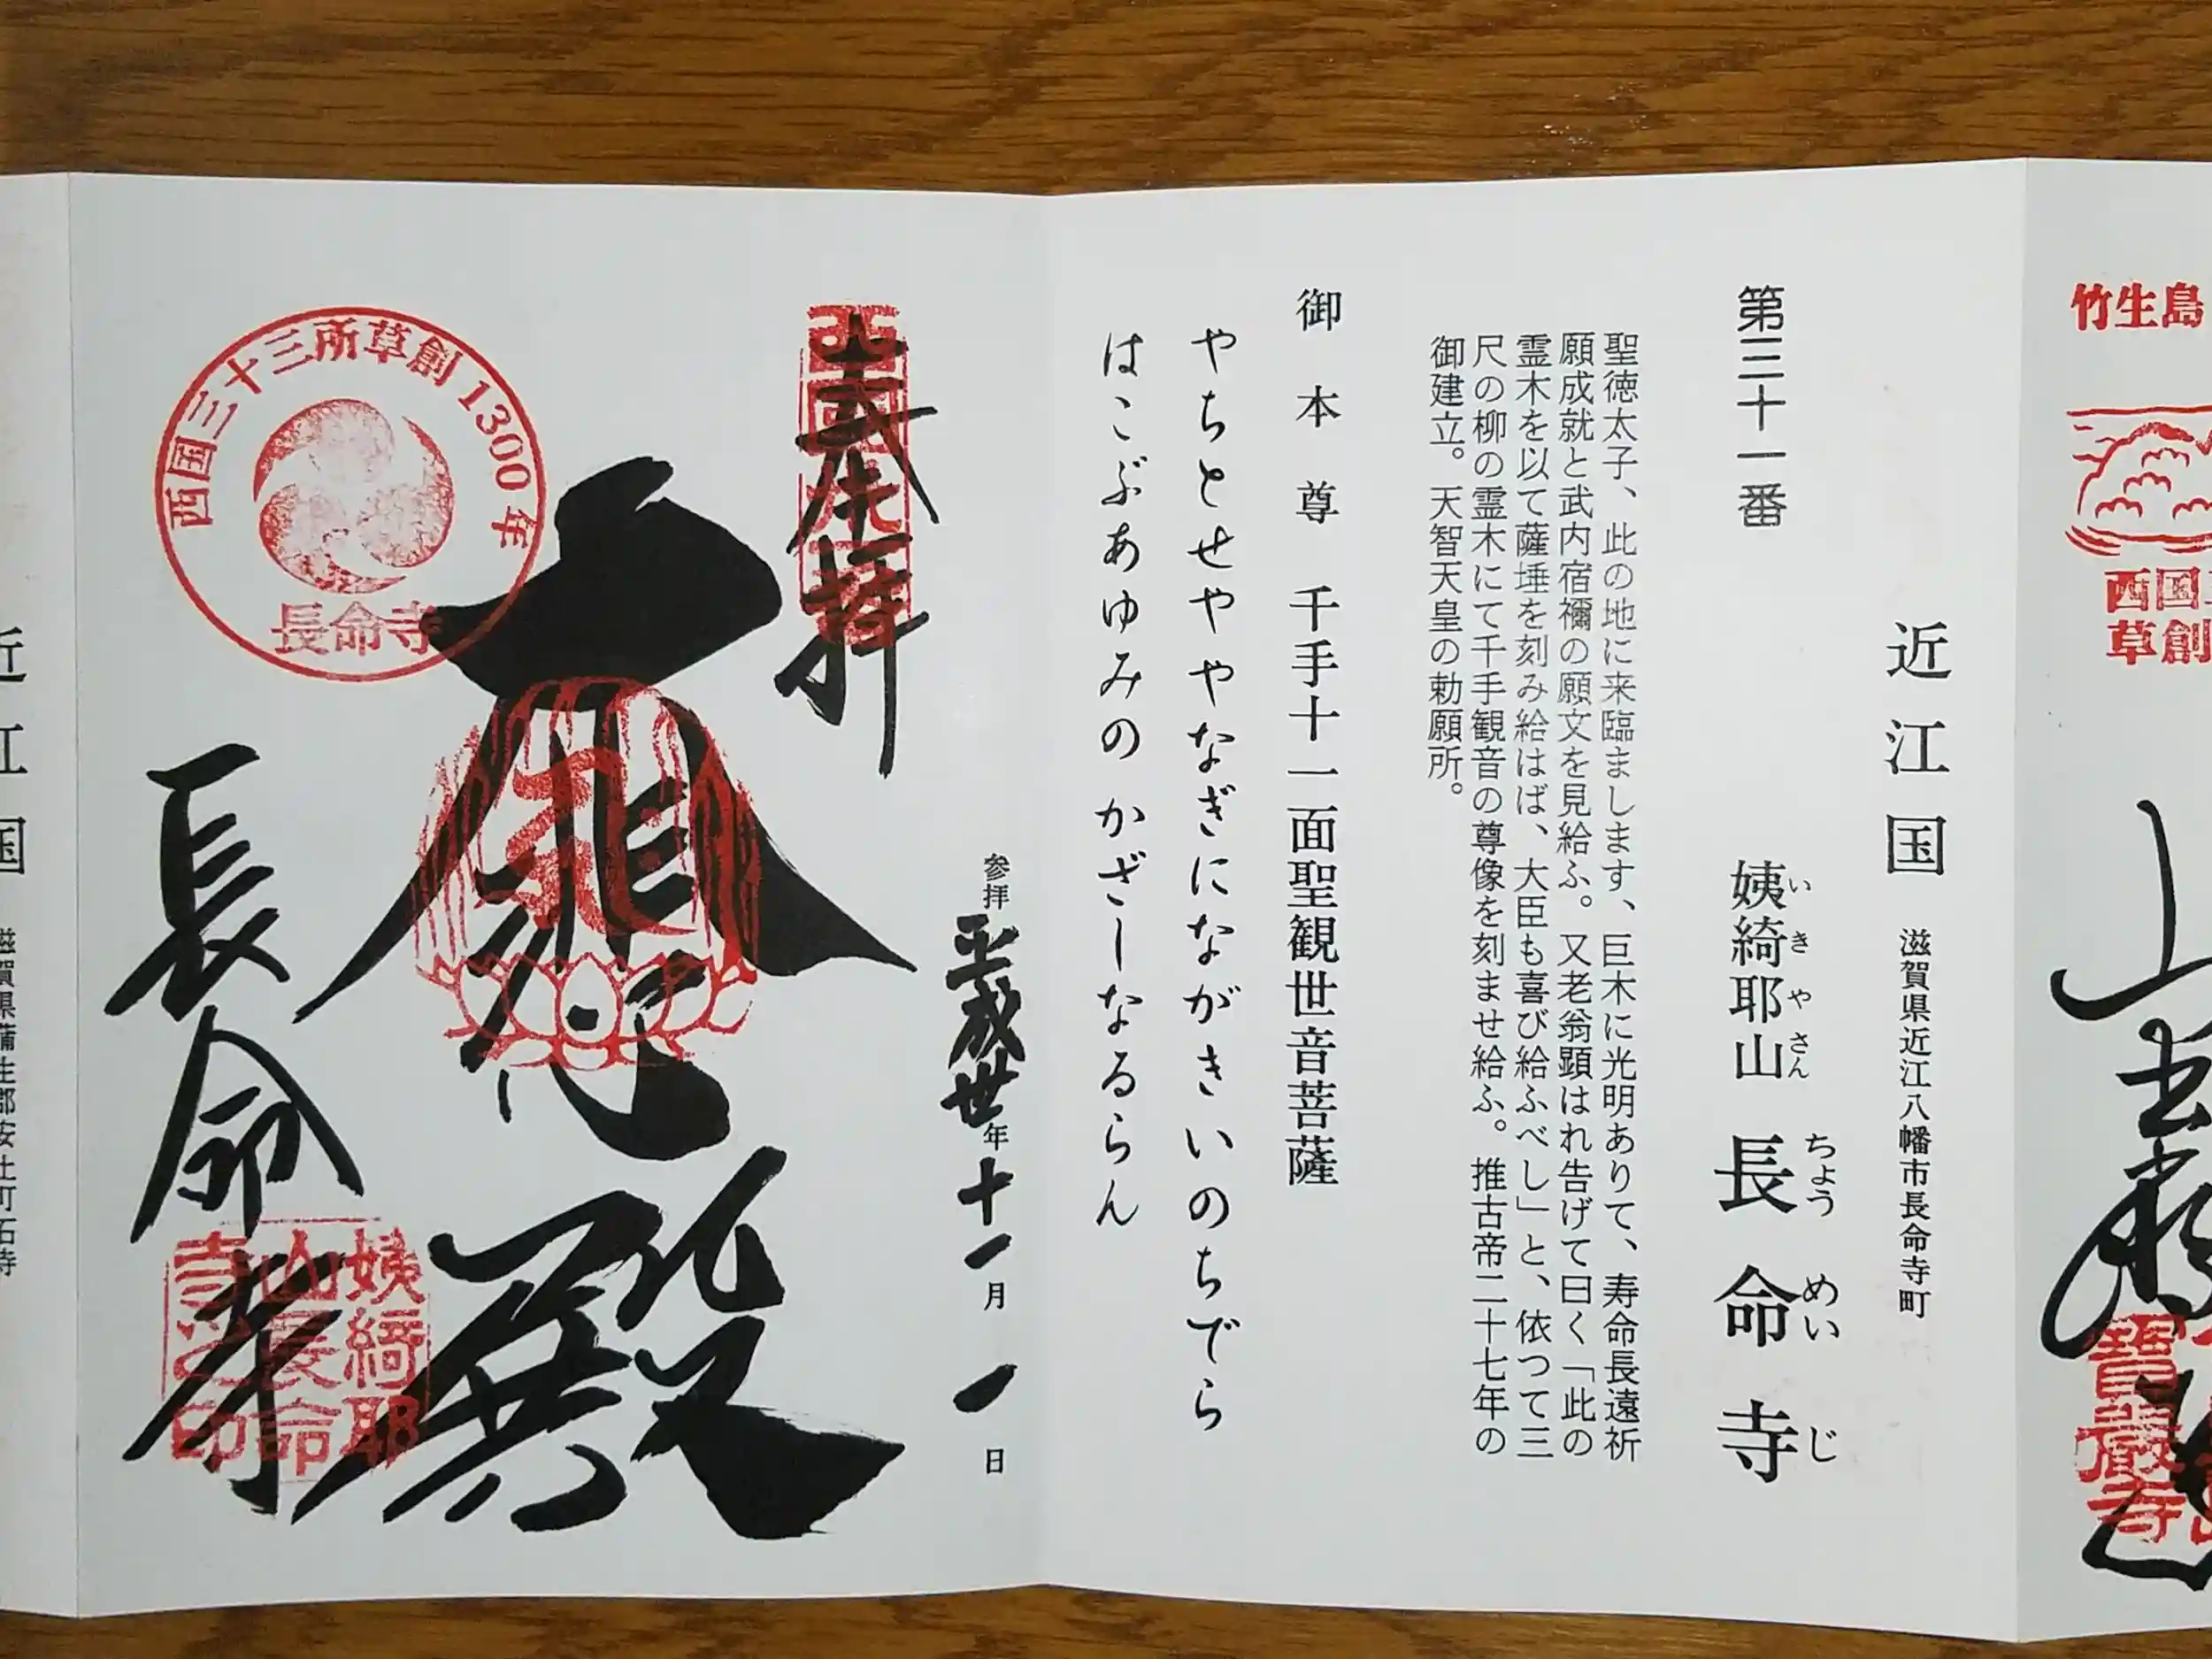 竹生島
近江国
滋賀県近江八幡市長命寺町
第三十一番
姨綺耶山 長命寺
いきやさん ちょうめいじ
聖徳太子、此の地に来臨まします、巨木に光明ありて、寿命長遠祈
願成就と武内宿禰の願文を見給ふ。又老翁顕はれ告げて曰く「此の
霊木を以て薩埵を刻み給はば、大臣も喜び給ふべし」と、依つて三
尺の柳の霊木にて千手観音の尊像を刻ませ給ふ。推古帝二十七年の
御建立。天智天皇の勅願所。
御本尊 千手十一面聖観世音菩薩
やちとせや やなぎにながきいのちでら
はこぶあゆみの かざしなるらん
参拝 平成卅年十一月一日
奉拝
西国三十三所草創1300年
長命寺
大悲殿
長命寺
姨綺耶
山長命
寺之印
近江国
滋賀県蒲生郡安土町石寺